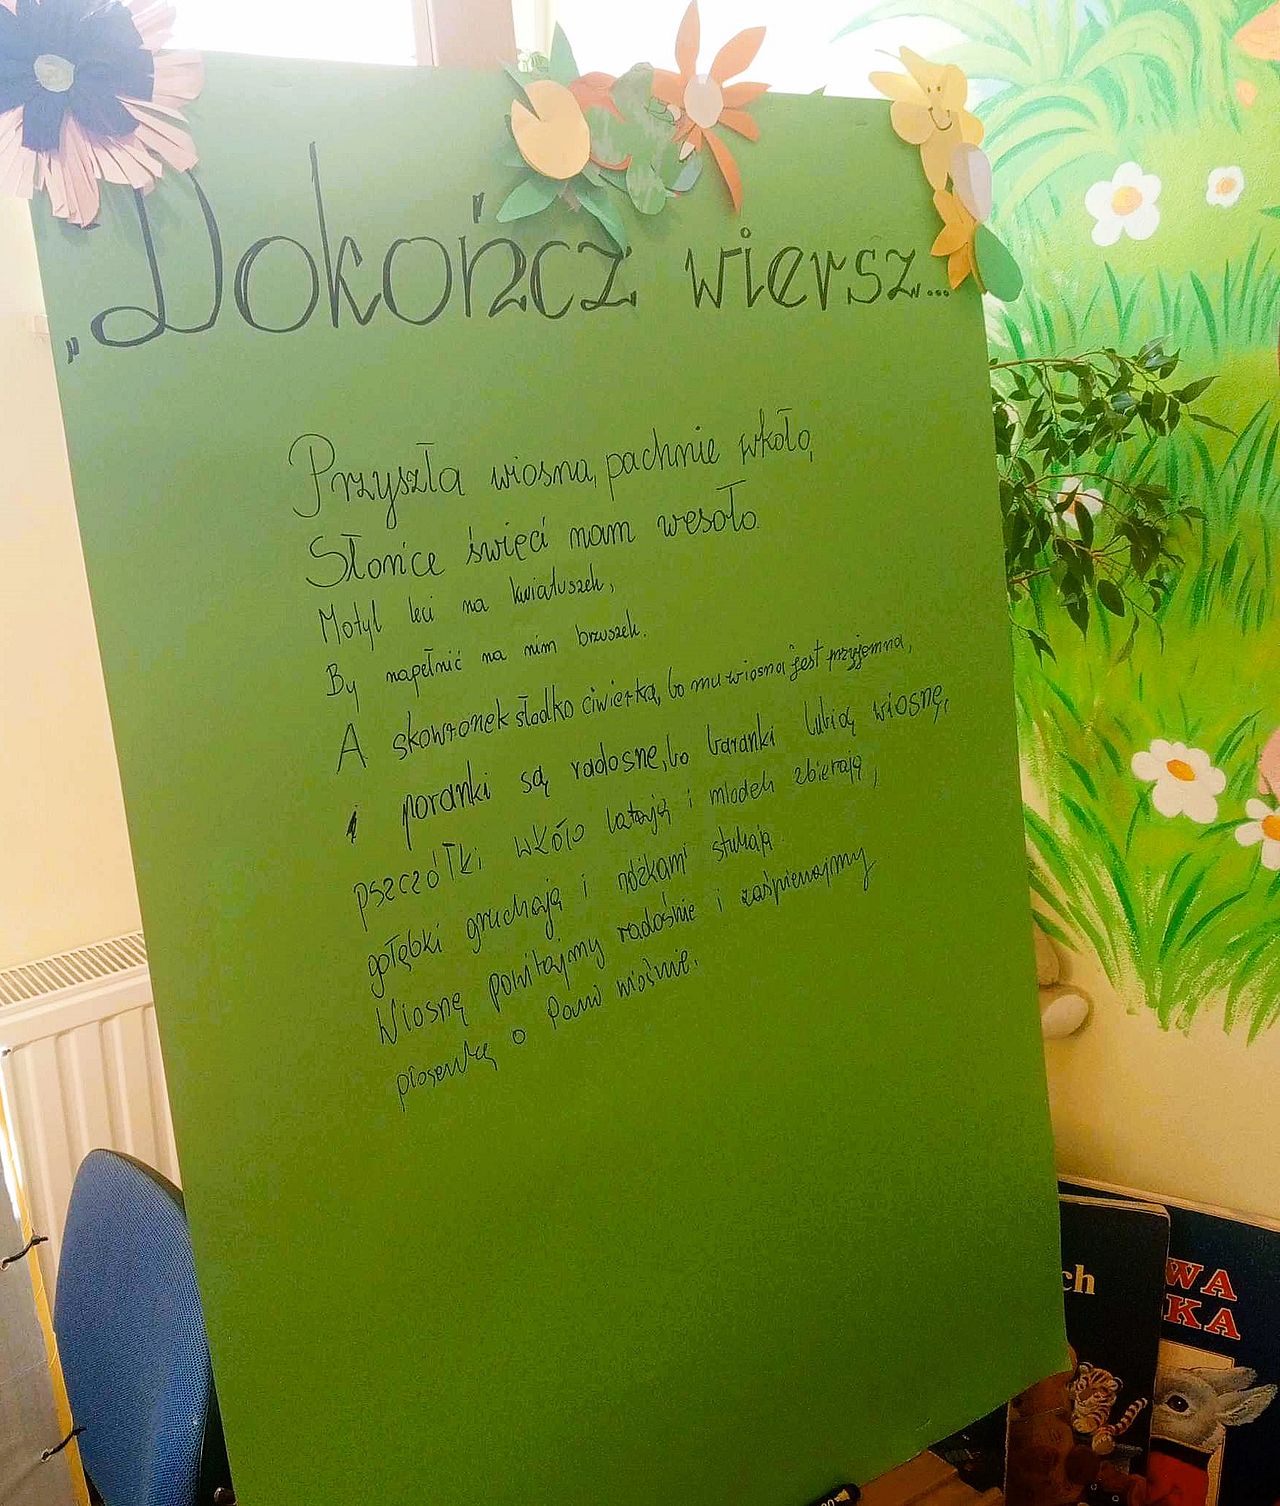 „Dokończ wiersz...
Przyszła wiosna, pachnie wkoło,
Słońce święci nam wesoło.
Motyl leci na kwiatuszek,
By napełnić na nim brzuszek.
A skowronek słodko ćwierka, bo mu wiosna jest przyjemna,
i poranki są radosne, bo baranki lubią wiosnę,
pszczółki wkóło latają i miodek zbierają,
gołębki gruchają i nóżkami stukają
Wiosnę powitajmy radośnie i zaśpiewajmy
piosenkę o Pani wiośnie.
ch
WA
KA